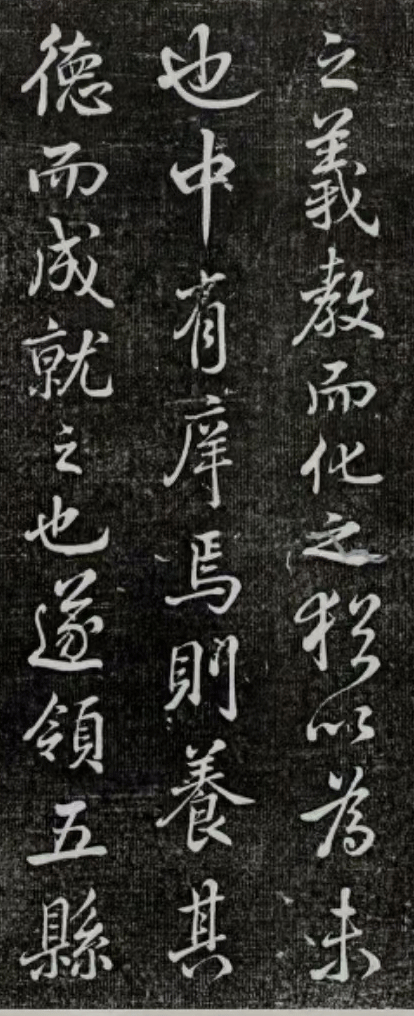 之義教而化之猶以為未
也中有庠焉則養其
德而成就之也遂領五縣